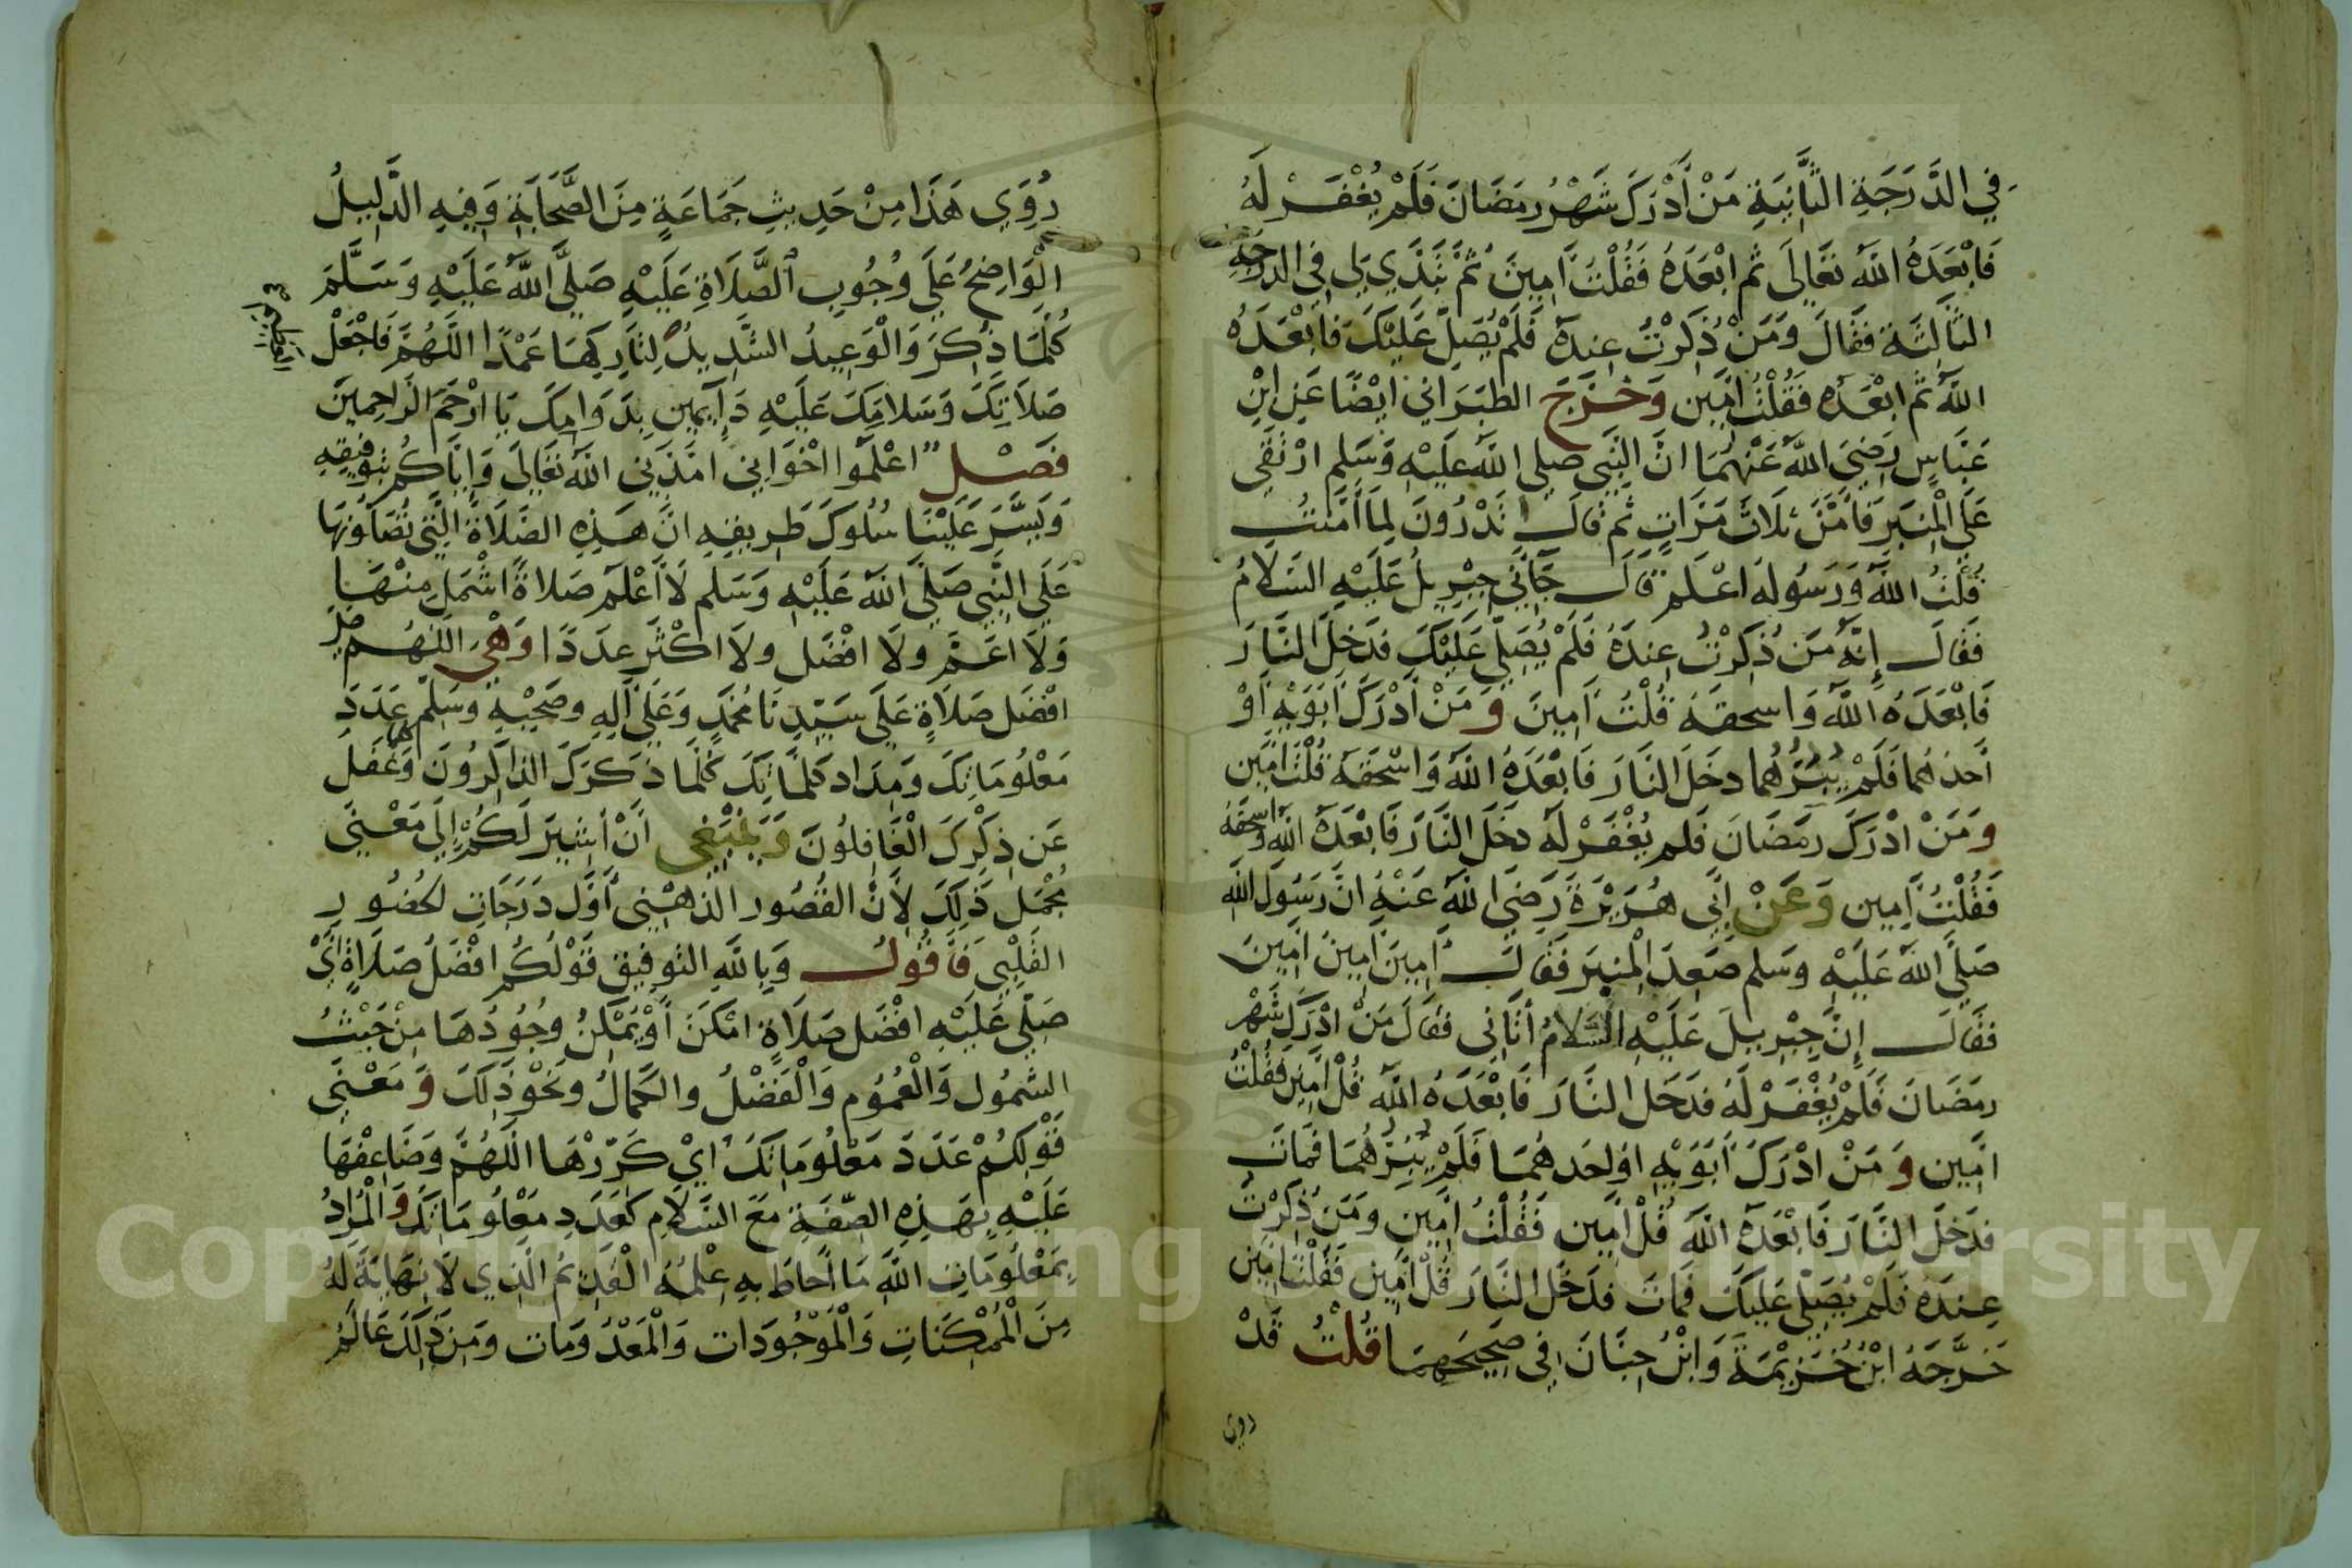 فِي الدَّرَجَةِ الثَّانِيَةِ مَنْ أَدْرَكَ شَهْرُ رمَضَانَ فَلَمْ يُغْفَرْ لَهُ
فَابْعَدَهُ اللَّهُ تعَالَى ثم ابْعَدَهُ فَقُلْتُ آمِينَ ثُمَّ تَبَدَّي لِي فِي الدرَجَةِ
الثَّالِثَةِ فقَالَ وَمَنْ ذُكِرْتُ عِندَهُ فَلَمْ يُصَلِّ عَلَيْكَ فَابْعَدَهُ
اللَّهُ ثم ابْعَدَهُ فقُلْتُ امِين وَخَرَّجَ الطبَرَاني ايْضًا عَنِ ابْنِ
عَبَّاسٍ رَضِيَ اللَّهُ عَنْهُمَا انَّ النَّبِي صلى اللَّهُ عَلَيْهِ وَسَلم ارْتَقَى
عَلَى الْمِنبَرِ فَأَمَّنَ ثلَاثَ مَرَّاتٍ ثم قالَ تَدْرُونَ لِمَا أَمَّنْتُ
قُلْتُ اللَّهُ وَرَسُوله اعْلم قَالَ جَآنِي جِبْرِيلُ عَلَيْهِ السَلامُ
فقَالَ إِنَّهُ مَن ذُكِرْتُ عِندَهُ فَلَمْ يُصَلِّي عَلَيْكَ فدَخلَ النَّارَ
فَابْعَدَهُ اللَّهُ وَاسحقهُ قُلْتُ آمِينَ وَمَنْ أَدْرَكَ أبَوَيْهِ أَوْ
أَحدهُما فَلَمْ يَبُرَّهُما دخَلَ النَّارَ فَابْعَدَهُ اللَّهُ وَاسْحَقَهُ قُلْتُ امِين
وَمَنْ ادْرَكَ رمَضَانَ فَلم يُغْفَرْ لَهُ دخَلَ النَّارَ فَابْعَدَهُ اللَّهُ وَاسحقه
فَقُلْتُ آمِين وَعَنْ ابِي هُرَيْرَةَ رَضِيَ اللَّهُ عَنْهُ انَّ رَسُولَ اللَّهِ
صَلَّى اللَّهُ عَلَيْهِ وسَلم صَعِدَ الْمِنبَرَ فَقَالَ آمِينَ آمِينَ آمِينَ
فقَالَ إِنَّ جِبْرِيلَ عَلَيْهِ السَّلامُ أَتَانِى فقَالَ مَنْ ادْرَكَ شَهْر
رمَضَانَ فَلَمْ يُغْفَرْ لَهُ فدَخَل النَّارَ فَابْعَدَهُ اللَّهُ قُلْ امِين فَقُلْتُ
امِين وَمَنْ ادْرَكَ أَبَوَيْهِ اوْاحَدهُمَا فَلَمْ يَبُرَّهُمَا فمَاتَ
فدَخَلَ النَّارَ فَابْعَدَهُ اللَّهُ قُلْ آمِين فَقُلْتُ امِين وَمَن ذُكِرْتُ
عِندَهُ فَلمْ يُصَلِّي عَلَيْكَ فمَاتَ فدَخَل النَّارَ قُلْ امِين فَقُلْتُ امِين
خَرَّجَهُ ابْنُ خُزيْمَةَ وَابْنُ حِبَّانَ فِي صَحِيحَهِمَا قُلْتُ قَدْ
روي
رُوِيَ هَذَا مِنْ حَدِيثِ جَمَاعَةٍ مِنَ الصَّحَابَةِ وَفِيهِ الدَّلِيلُ
الْوَاضِحُ عَلَى وُجُوبِ الصَّلَاةِ عَلَيْهِ صَلَّى اللَّهُ عَلَيْهِ وَسَلَّمَ
كُلَّمَا ذُكِرَ وَالْوَعِيدُ الشَّدِيدُ لِتَارِكهَا عَمْدًا اللَّهُمَّ فَاجْعَلْ
صَلَاتكَ وَسَلامَكَ عَلَيْهِ دَآيِمَينِ بِدَوَامِكَ يَا ارْحَمَ الرَاحِمِينَ
فَصْل اعْلَمُوا اخْوَانِي امَدَّنِي اللَّهُ تعَالَى وَإِيَّاكُم بتَوفِيقِهِ
وَيَسَّرَ عَلَيْنَا سُلُوكَ طَرِيقِهِ انَّ هَذِهِ الصَّلَاةَ الَّتِي تُصَلونهَا
عَلَى النَّبِي صَلَّى اللَّهُ عَلَيْهِ وَسَلم لَا أَعْلَم صَلاةً اشْمَل مِنْهَا
وَلَا اعَمّ ولَا افْضَل ولَا اكْثَر عدَدًا وَهْيَ اللَّهُم صل
افْضَل صَلَاةٍ عَلَى سَيِّدِنَا مُحَمَّدٍ وَعَلَى آلِهِ وصَحْبِهِ وَسَلِّم عَدَدَ
مَعْلُومَاتِكَ وَمِدَاد كَلمَاتِكَ كُلَّمَا ذَكَرَكَ الذاكِرُونَ وَغَفَل
عَن ذِكْرِكَ الْغَافِلُونَ وَيَنْبَغِي أَنْ أُشِيرَ لَكُمْ إِلَى مَعْنَى
مُجْمَل ذَلِكَ لِأَنَّ القُصُور الذهْنِي أَوَّل دَرَجَاتِ لحُضُورِ
القَلْبِي فَأَقُولُ وَبِاللَّهِ التوفِيق قَوْلُكُم افْضَلَ صَلَاةٍ أَيْ
صَلِّي عَلَيْهِ افْضَل صَلَاةٍ امْكَنَ أَوْيُمْكِنُ وجُودُهَا مِنْ حَيْثُ
الشّمُول وَالْعُمُوم وَالْفَضْلُ والكَمالُ ونَحْو ذَلِكَ وَمَعْنَى
قَوْلِكُمْ عَدَدَ مَعْلُومَاتكَ ايْ كَرِّرْهَا اللَّهُمَّ وَضَاعِفْهَا
عَلَيْهِ بِهَذِهِ الصِّفَةِ مَعَ السَّلَامِ كعَدَدِ مَعْلُومَاتكَ وَالْمُرَادُ
بِمَعْلُومَاتِ اللَّهِ مَا أَحاطَ بهِ عِلْمُهُ الْقَدِيْمُ الَّذِي لَا نهَايَةَ لَهُ
مِنَ الْمُمْكِنَاتِ وَالْمَوْجُودَات وَالْمَعْدُومَات وَمِن ذَلِكَ عَالَمُ
Copyright © King Saud University